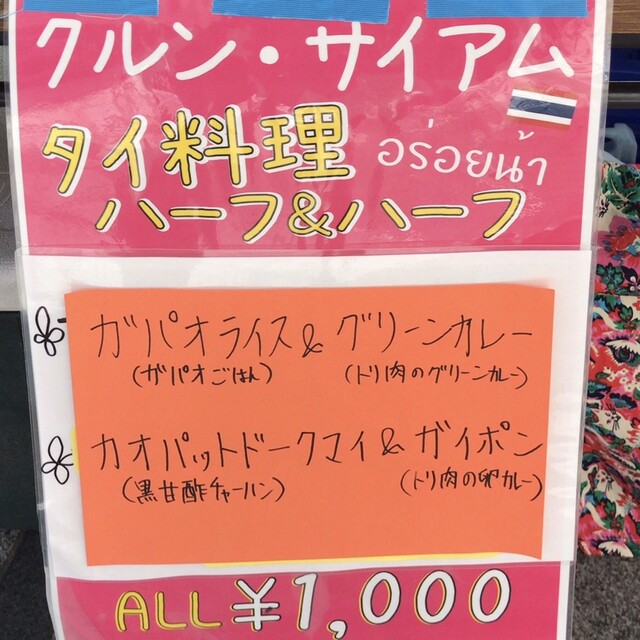 クルン・サイアム
タイ料理 อร่อยน้า
ハーフ&ハーフ
ガパオライス & グリーンカレー
(ガパオごはん) (トリ肉のグリーンカレー)
カオパットドークマイ & ガイポン
(黒甘酢チャーハン) (トリ肉の卵カレー)
ALL ¥1,000